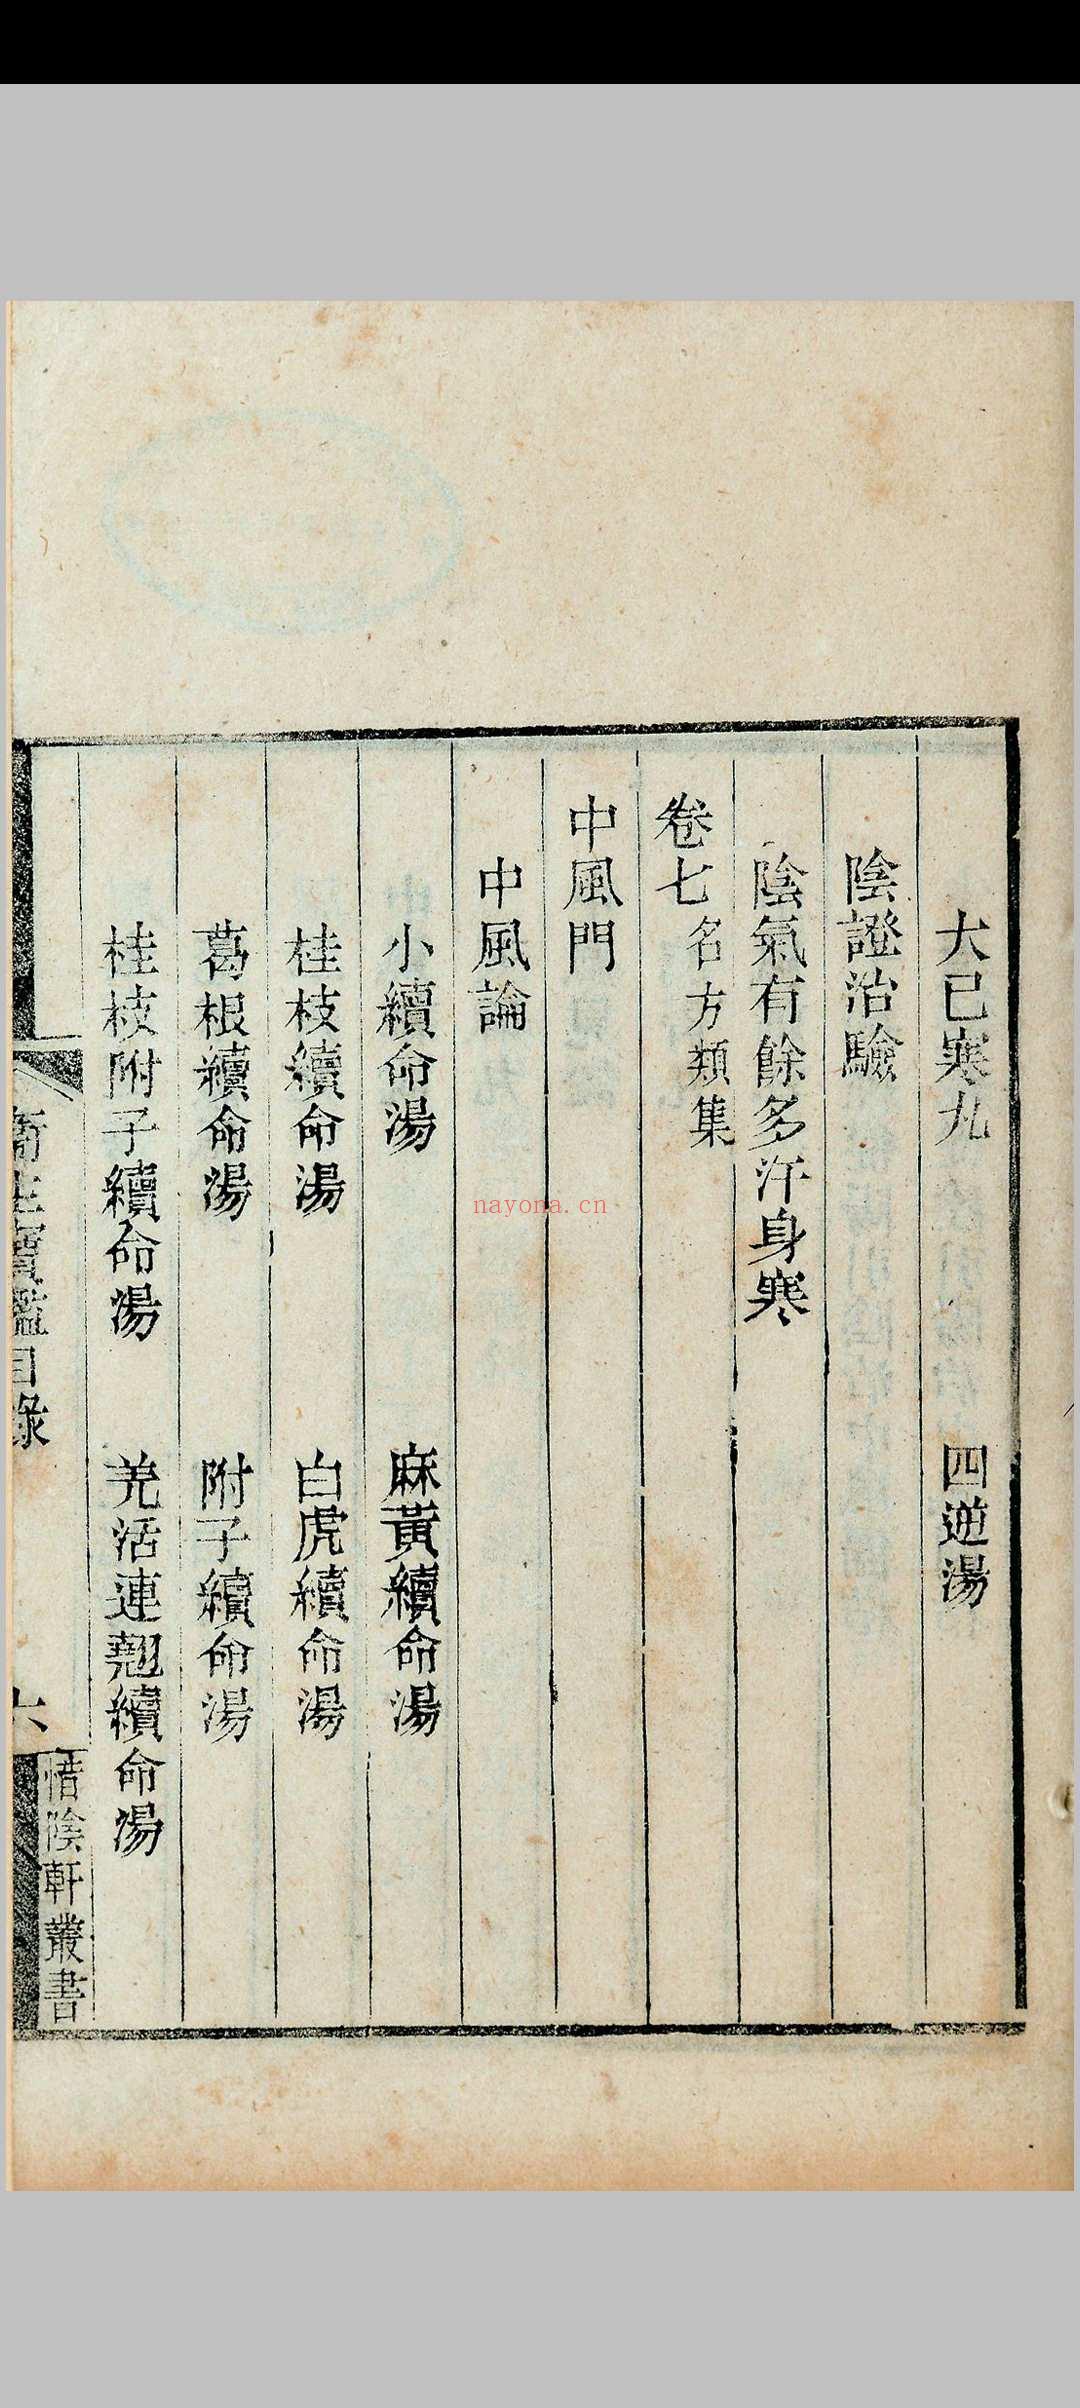 大已寒丸　四逆湯
陰證治驗
陰氣有餘多汗身寒
卷七名方類集
中風門
中風論
小續命湯　麻黃續命湯
桂枝續命湯　白虎續命湯
葛根續命湯　附子續命湯
桂枝附子續命湯　羌活連翹續命湯
衛生寶鑑目錄　六
惜陰軒叢書
nayona.cn